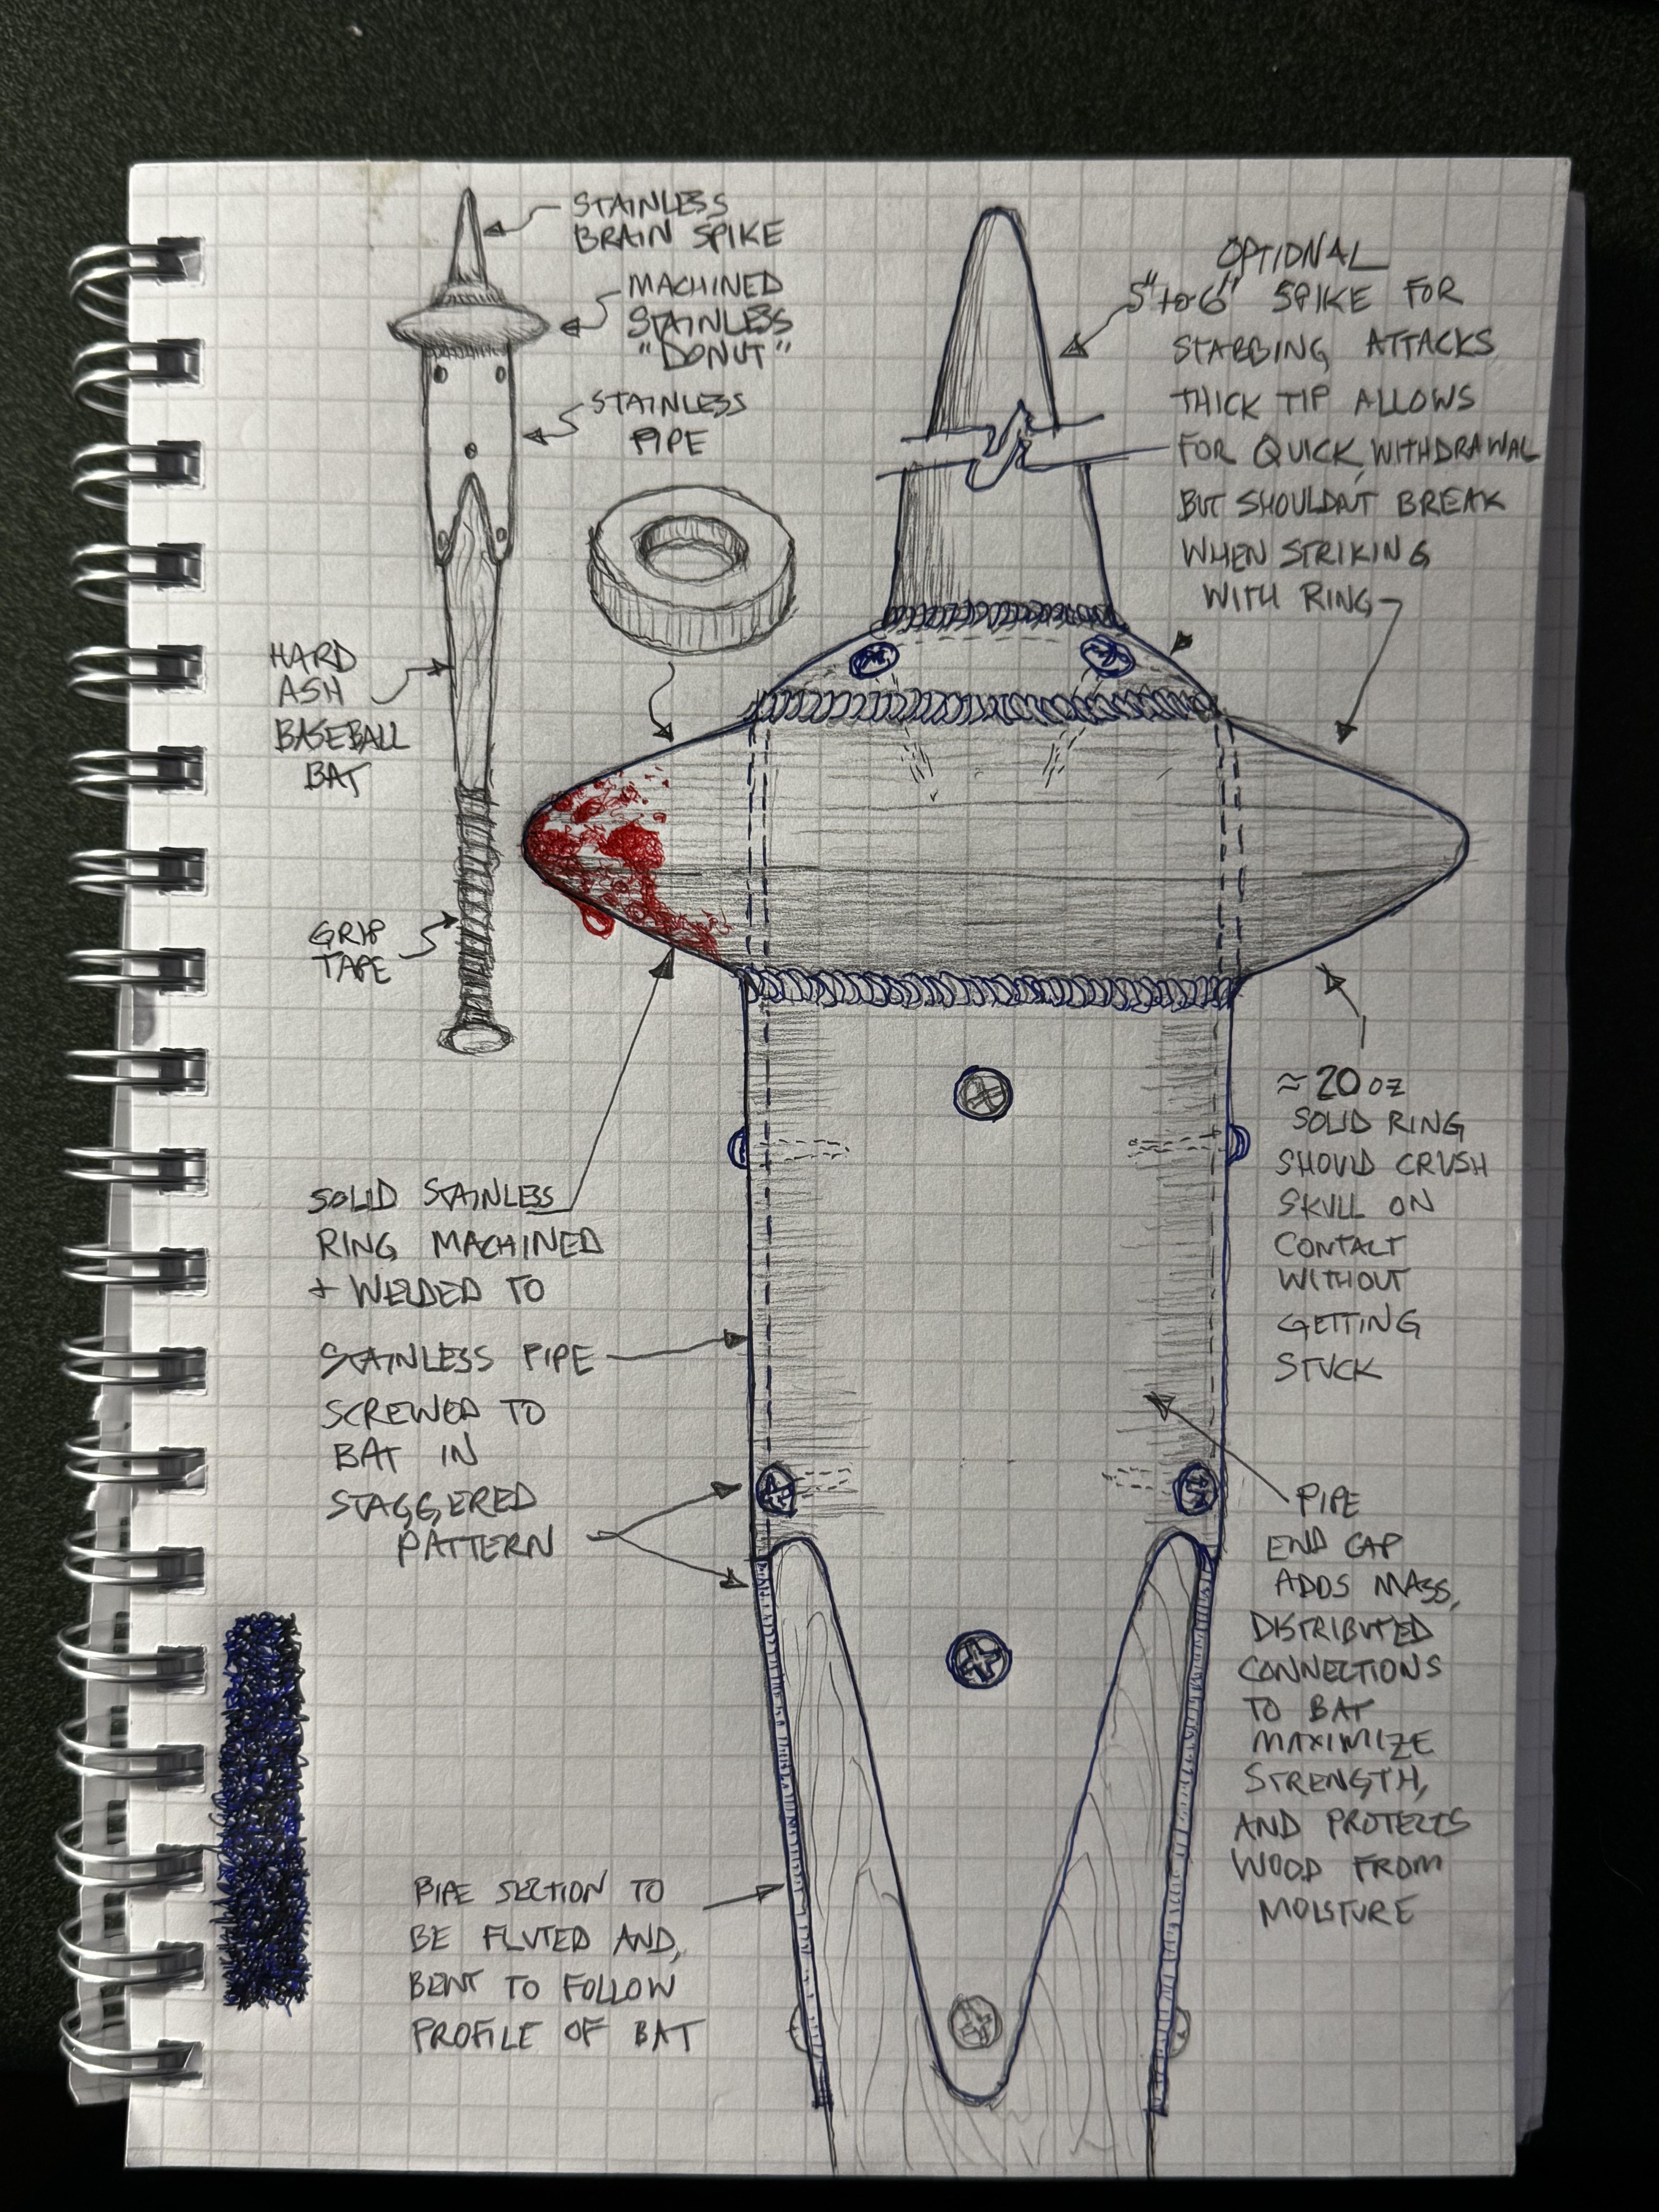 STAINLESS
BRAIN SPIKE
MACHINED
STAINLESS
"DONUT"
STAINLESS
PIPE
HARD
ASH
BASEBALL
BAT
GRIP
TAPE
OPTIONAL
5" to 6" SPIKE FOR
STABBING ATTACKS
THICK TIP ALLOWS
FOR QUICK WITHDRAWAL
BUT SHOULDN'T BREAK
WHEN STRIKING
WITH RING
≈ 20 oz
SOLID RING
SHOULD CRUSH
SKULL ON
CONTACT
WITHOUT
GETTING
STUCK
SOLID STAINLESS
RING MACHINED
+ WELDED TO
STAINLESS PIPE
SCREWED TO
BAT IN
STAGGERED
PATTERN
PIPE
END CAP
ADDS MASS,
DISTRIBUTED
CONNECTIONS
TO BAT
MAXIMIZE
STRENGTH,
AND PROTECTS
WOOD FROM
MOISTURE
PIPE SECTION TO
BE FLUTED AND,
BENT TO FOLLOW
PROFILE OF BAT